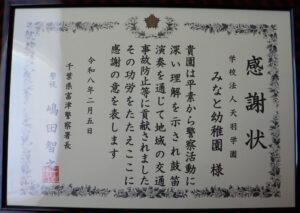 感謝状
学校法人天羽学園
みなと幼稚園 様
貴園は平素から警察活動に
深い理解を示され鼓笛
演奏を通じて地域の交通
事故防止等に貢献されました
その功労をたたえここに
感謝の意を表します
令和八年二月五日
千葉県富津警察署長
警視 嶋田智